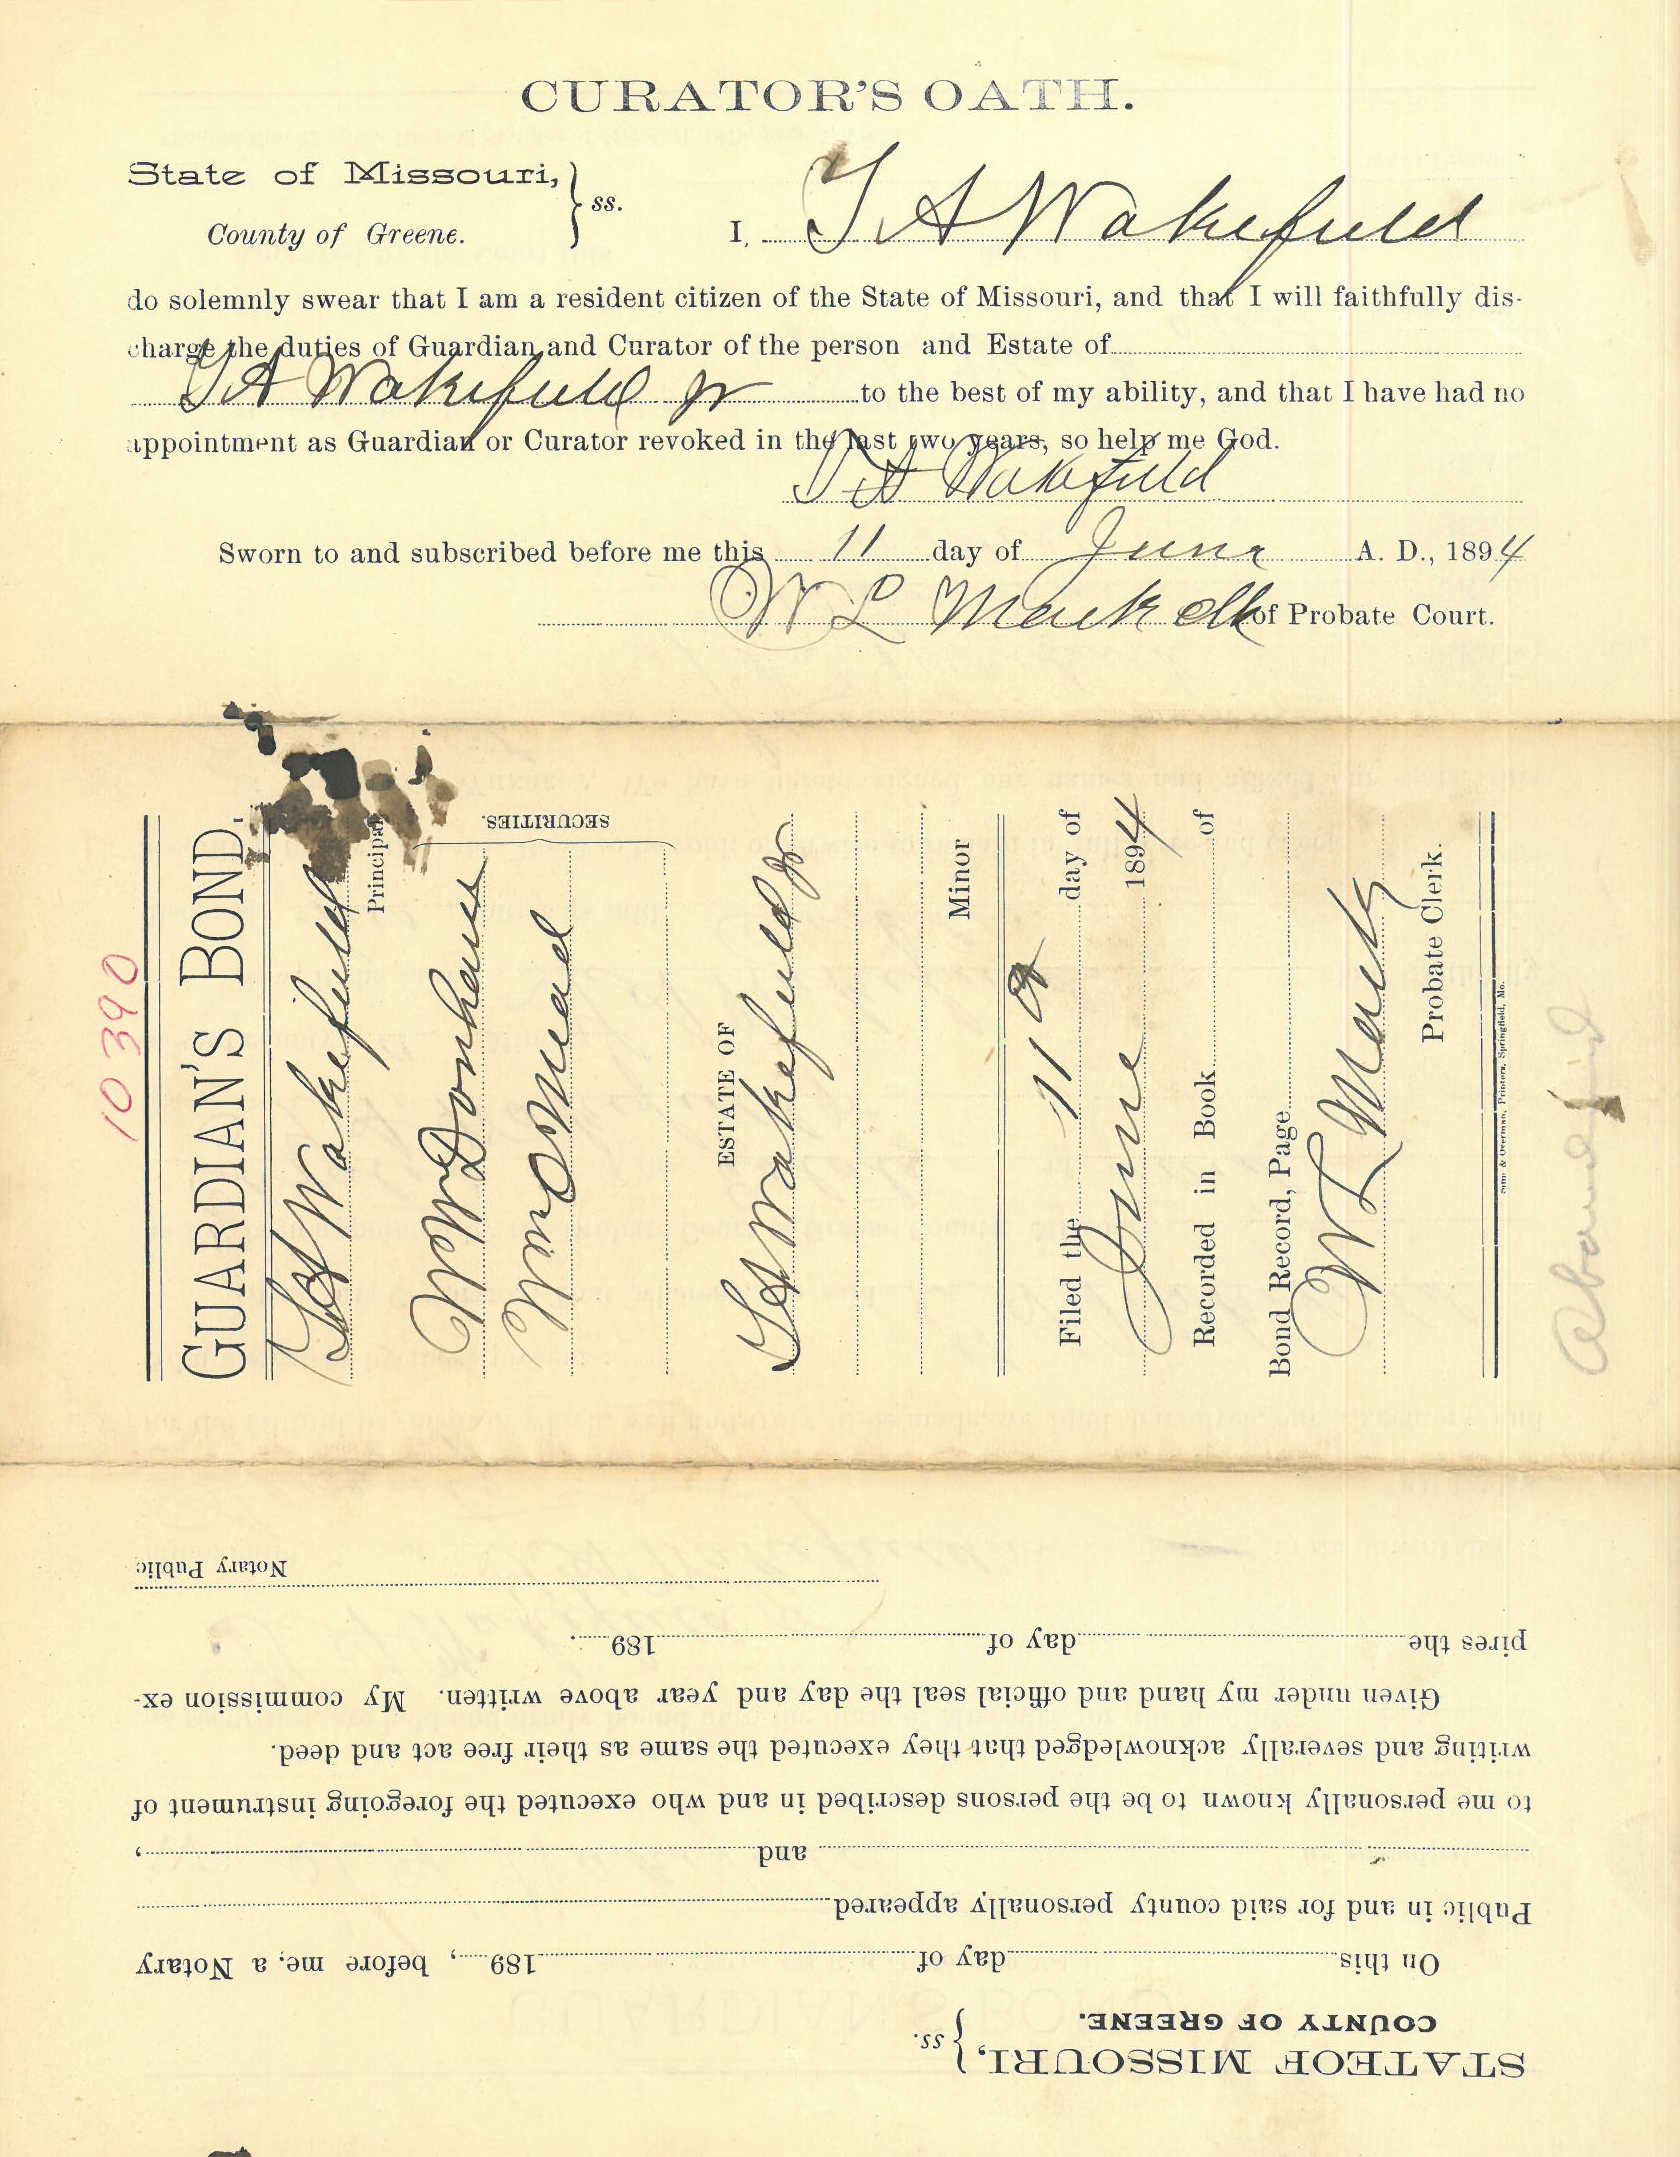 CURATOR'S OATH.
State of Missouri, } ss.
County of Greene.
I, T A Wakefield
do solemnly swear that I am a resident citizen of the State of Missouri, and that I will faithfully dis-
charge the duties of Guardian and Curator of the person and Estate of
T A Wakefield Jr to the best of my ability, and that I have had no
appointment as Guardian or Curator revoked in the last two years, so help me God.
T A Wakefield
Sworn to and subscribed before me this 11 day of June A. D., 1894
W L Mack clk of Probate Court.
10390
GUARDIAN'S BOND.
T A Wakefield
Principal
W W Donham
Wm O Mead
SECURITIES.
ESTATE OF
T A Wakefield Jr
Minor
Filed the 11 day of
June 1894
Recorded in Book of
Bond Record, Page
W L Mack
Probate Clerk.
Printers, Springfield, Mo.
STATE OF MISSOURI, } ss.
COUNTY OF GREENE.
On this day of 189 , before me, a Notary
Public in and for said county personally appeared
and ,
to me personally known to be the persons described in and who executed the foregoing instrument of
writing and severally acknowledged that they executed the same as their free act and deed.
Given under my hand and official seal the day and year above written. My commission ex-
pires the day of 189 .
Notary Public